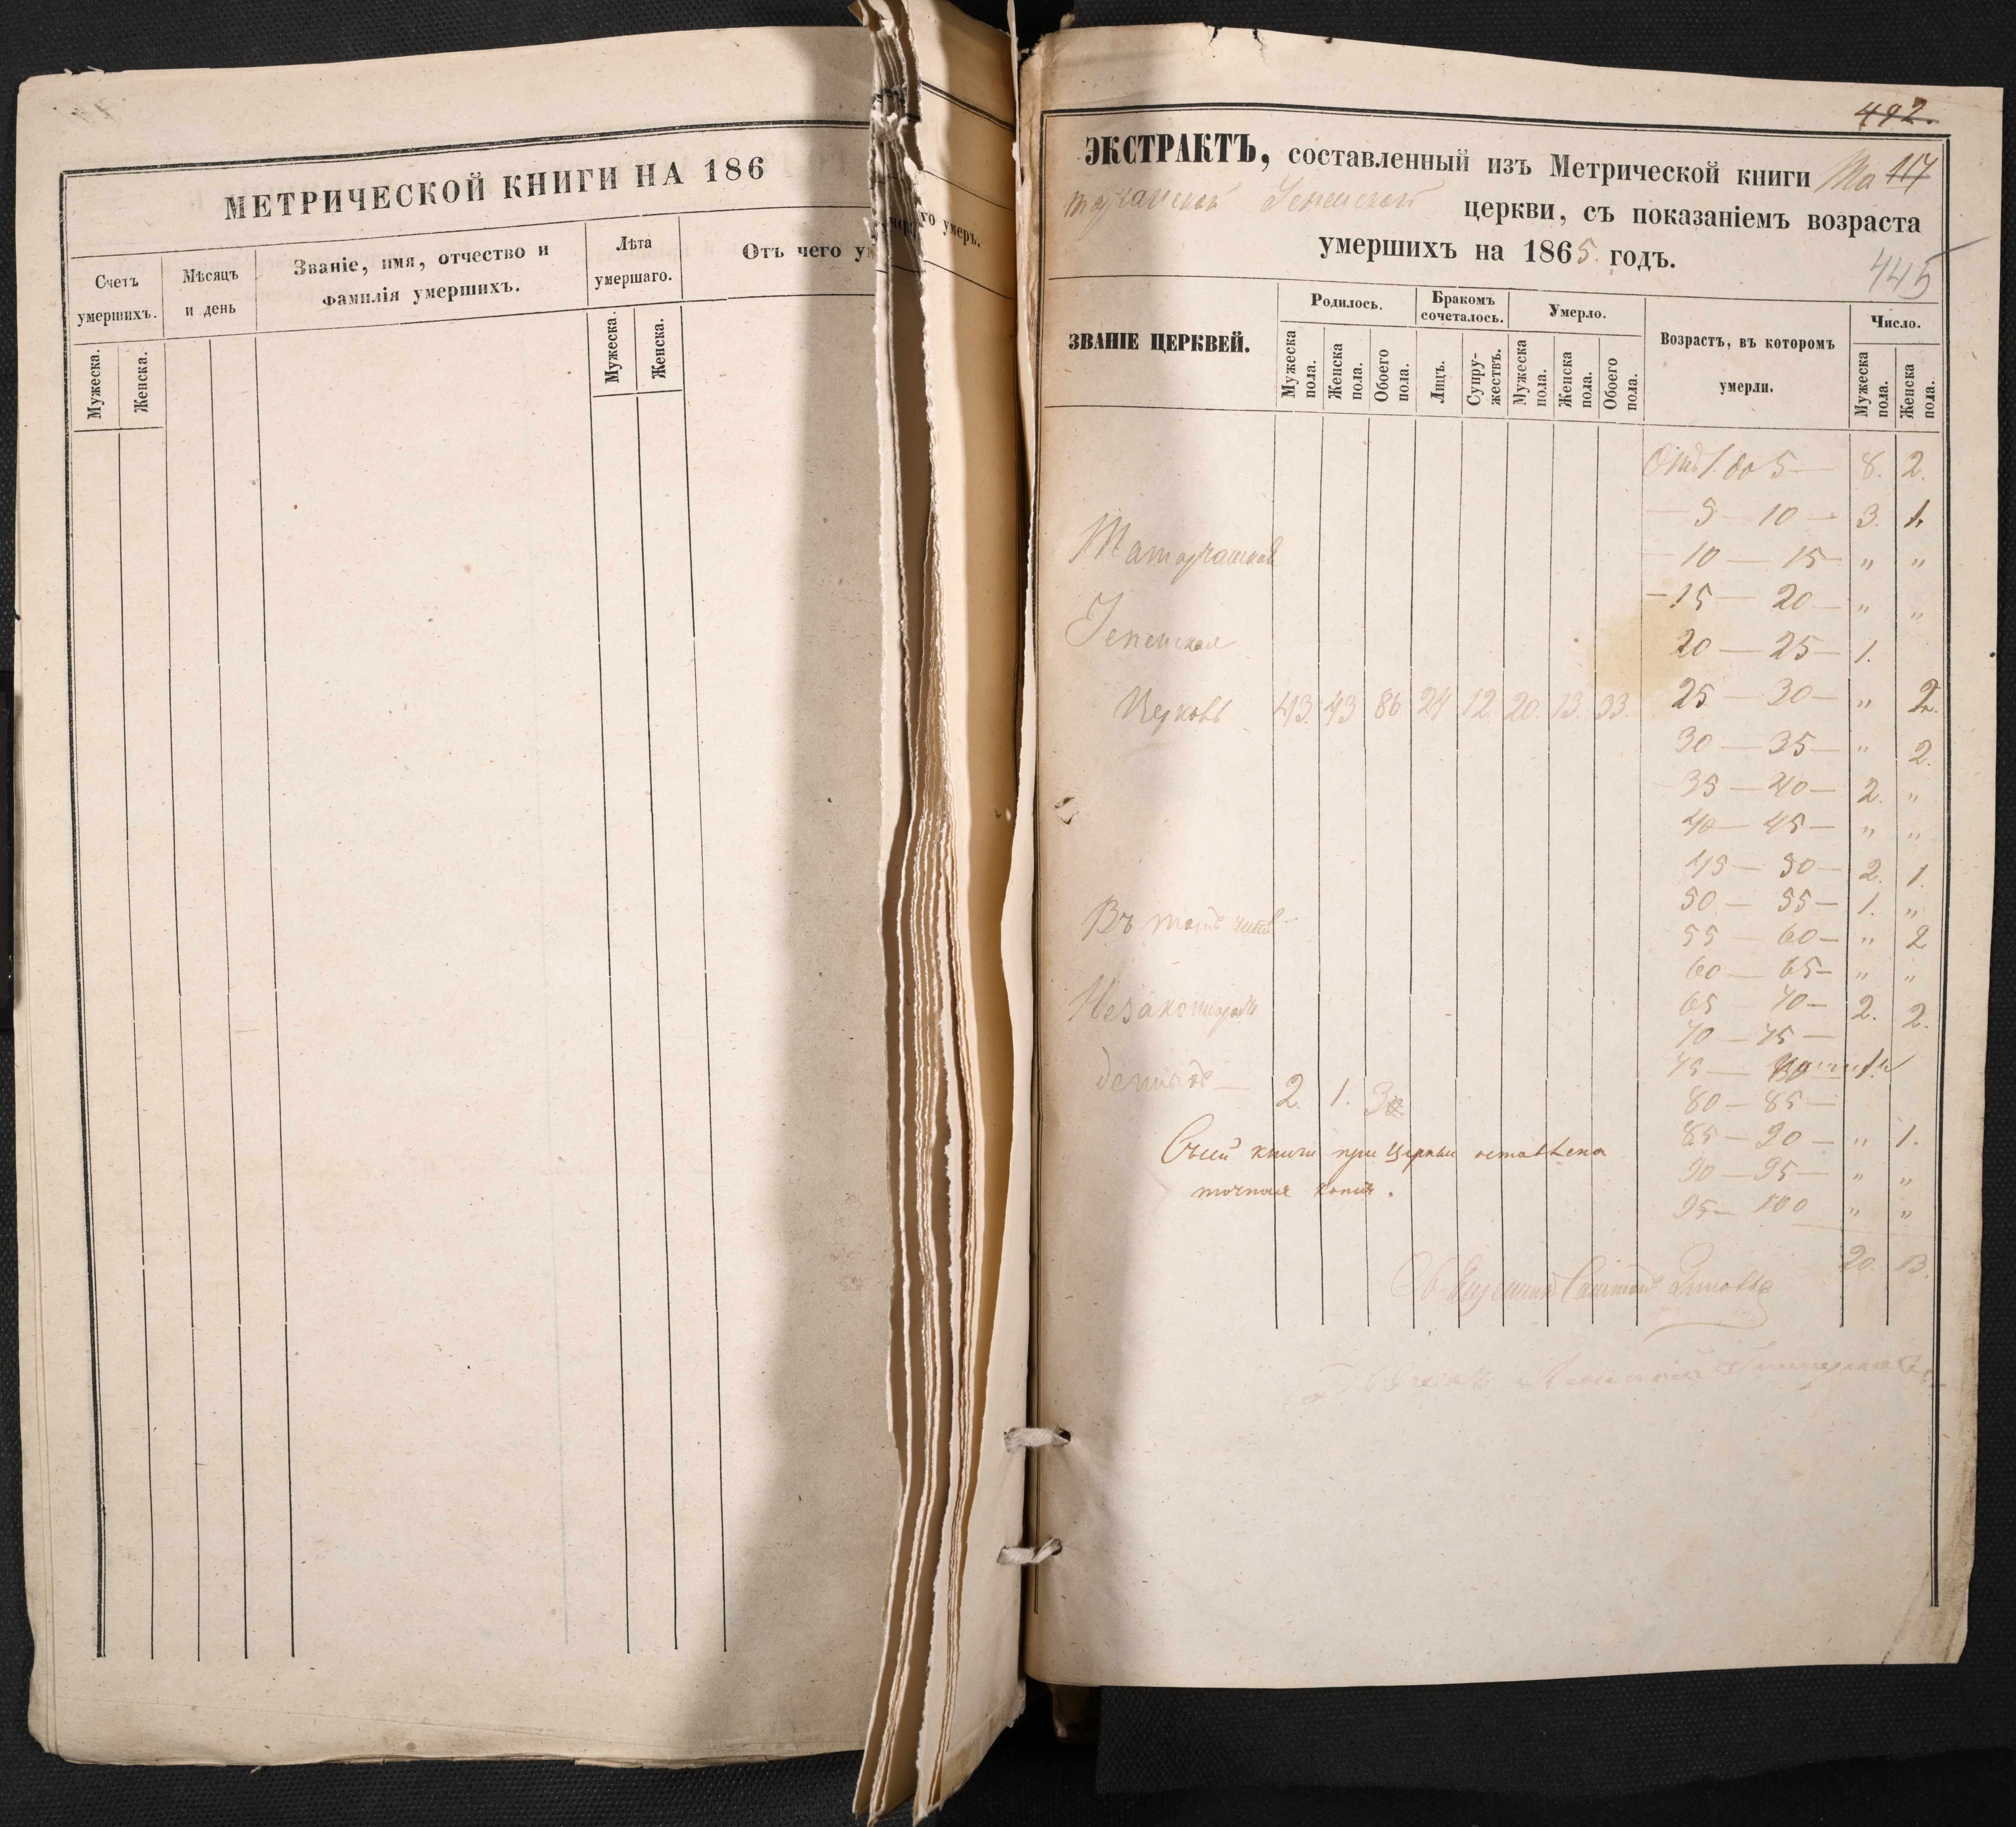 МЕТРИЧЕСКОЙ КНИГИ НА 186
Счетъ умершихъ.
Мѣсяцъ и день
Званіе, имя, отчество и фамилія умершихъ.
Лѣта умершаго.
Отъ чего ум
Мужеска.
Женска.
Мужеска.
Женска.
го умеръ.
492.
ЭКСТРАКТЪ, составленный изъ Метрической книги
117
церкви, съ показаніемъ возраста
умершихъ на 1865. годъ.
445
ЗВАНІЕ ЦЕРКВЕЙ.
Родилось.
Бракомъ сочеталось.
Умерло.
Возрастъ, въ которомъ умерли.
Число.
Мужеска пола.
Женска пола.
Обоего пола.
Лицъ.
Супружествъ.
Мужеска пола.
Женска пола.
Обоего пола.
Мужеска пола.
Женска пола.
Отъ 1. до 5 — 8. 2.
— 5 — 10 — 3. 1.
— 10 — 15 — " "
— 15 — 20 — " "
20 — 25 — 1.
Церковь 43. 43 86 24 12. 20. 13. 33.
25 — 30 — " 2.
30 — 35 — " 2.
35 — 40 — 2. "
40 — 45 — " "
45 — 50 — 2. 1.
50 — 55 — 1. "
Въ томъ числѣ
55 — 60 — " 2
60 — 65 — " "
65 — 70 — 2. 2.
70 — 75 —
75 —
80 — 85 —
2. 1. 3
85 — 90 — " 1.
90 — 95 — " "
95 — 100 " "
20. 13.
Сей книги при Церкви оставлена
точная копія.